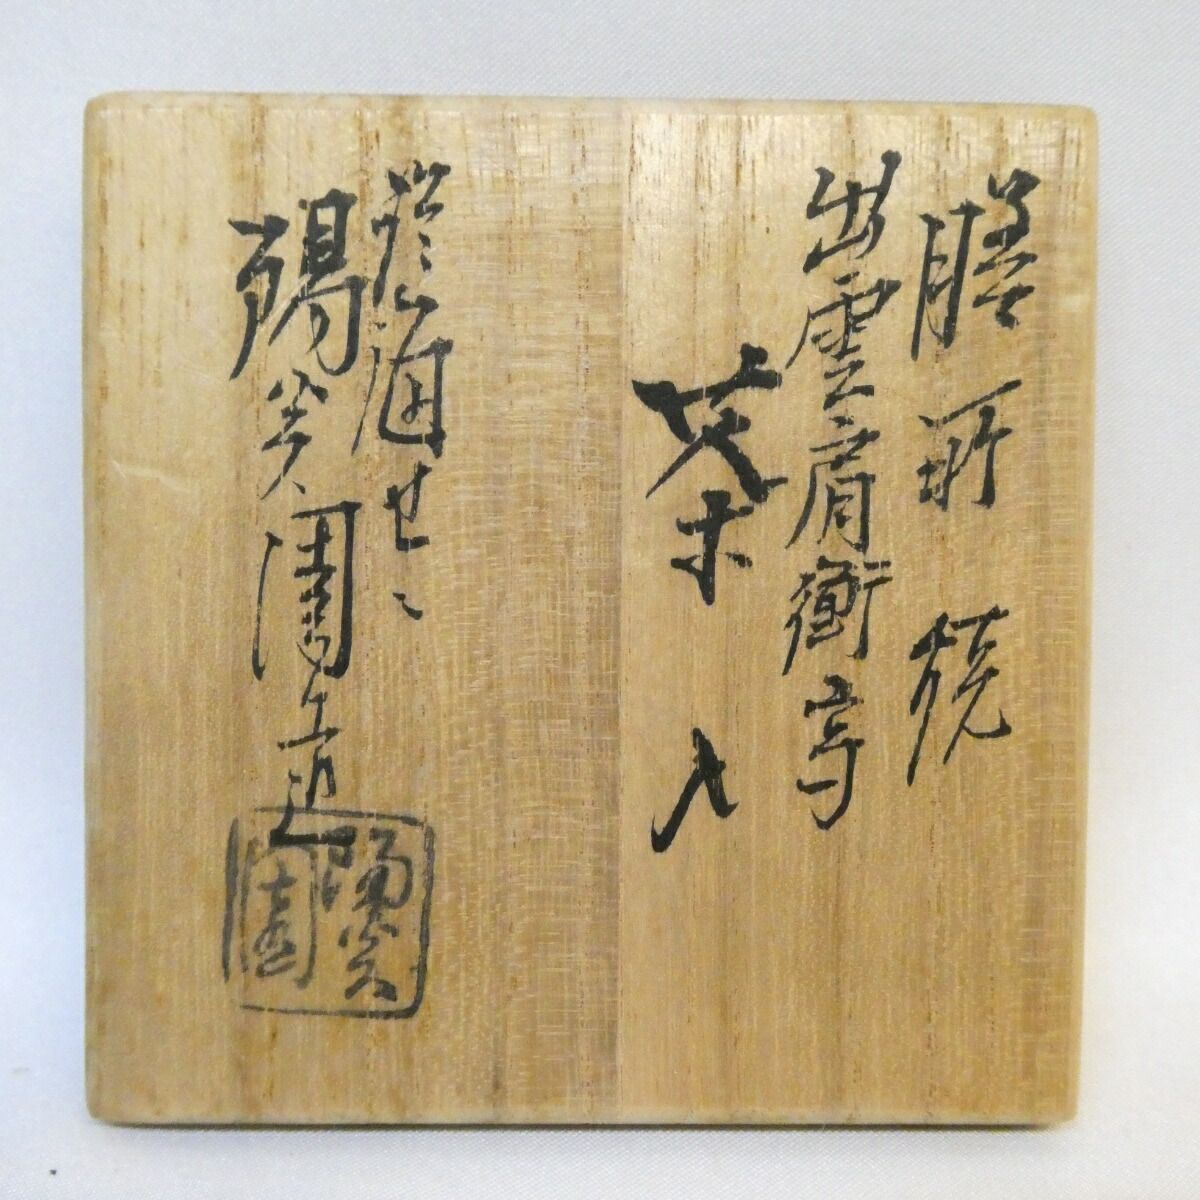 膳所焼
出雲肩衝写
茶入
陽炎園造
陽炎園